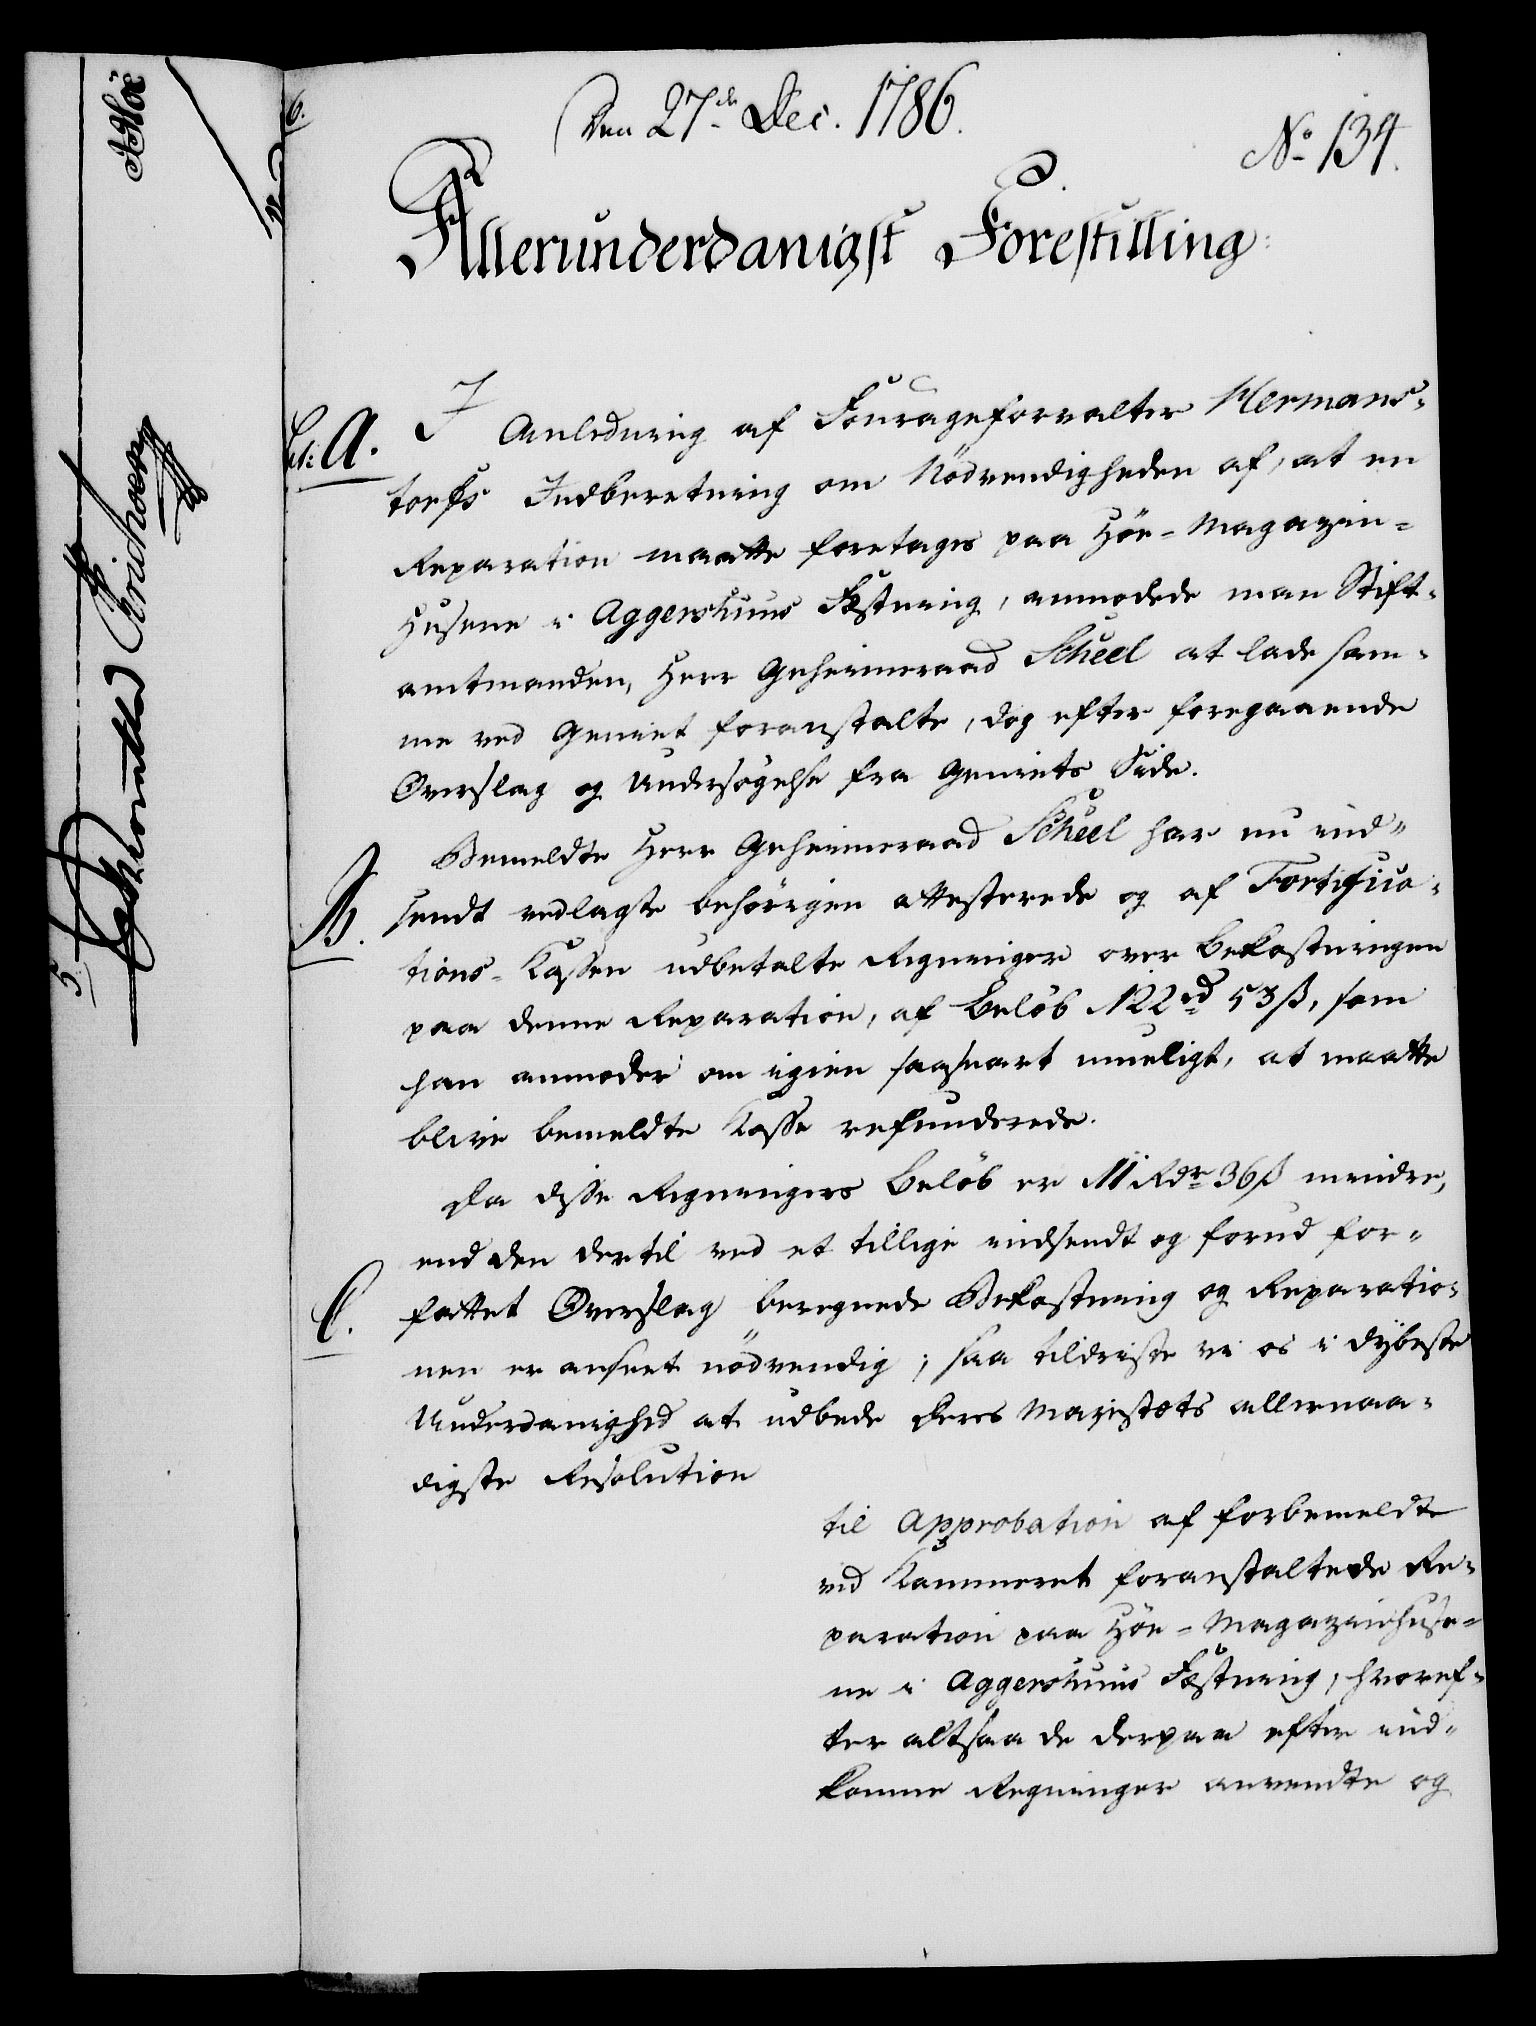 Den 27de Dec. 1786.
No 134.
Allerunderdanigst Forestilling:
Lit: A.
I Anledning af Fourageforvalter Hermans-
torfs Indberetning om Nödvendigheden af, at en
Reparation maatte foretages paa Höe-Magazin-
Husene i Aggershuus Fæstning, anmodede man Stift-
amtmanden, Herr Geheimeraad Scheel at lade sam-
me ved Geniet foranstalte, dog efter foregaaende
Overslag og Undersögelse fra Geniets Side.
Bemeldte Herr Geheimeraad Scheel har nu ind-
B.
sendt vedlagte behörigen attesterede og af Fortifica-
tions-Kassen udbetalte Regninger over Bekostningen
paa denne Reparation, af Belöb 122 rd 53 ß, som
han anmoder om igien saasnart mueligt, at maatte
blive bemeldte Kasse refunderede.
Da disse Regningers Belöb er 11 Rdr 36 ß mindre,
end den dertil ved et tillige indsendt og forud for-
C.
fattet Overslag beregnede Bekostning og Reparatio-
nen er anseet nödvendig; saa tildriste vi os i dybeste
Underdanighed at udbede Deres Majestæts allernaa-
digste Resolution
til Approbation af forbemeldte
ved Kammeret foranstaltede Re-
paration paa Höe-Magazinhuse-
ne i Aggershuus Fæstning, hvoref-
ter altsaa de derpaa efter ind-
komne Regninger anvendte og